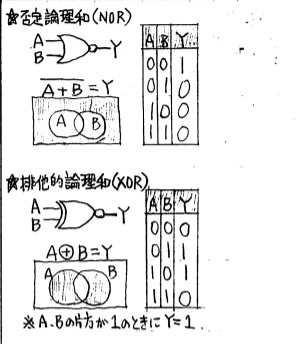 ☆否定論理和(NOR)
A
B
Y
A+B=Y
A B
A B Y
0 0 1
0 1 0
1 0 0
1 1 0
☆排他的論理和(XOR)
A
B
Y
A⊕B=Y
A B
A B Y
0 0 0
0 1 1
1 0 1
1 1 0
※A.Bの片方が1のときにY=1.